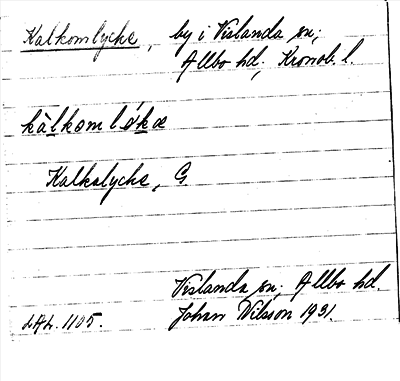 Kalkomlycke, by i Vislanda sn;
Allbo hd; Kronob. l.
kàlkomlø̀kæ
Kalkalycke, G.
Vislanda sn; Allbo hd.
LAL. 1105. Johan Nilsson 1931.